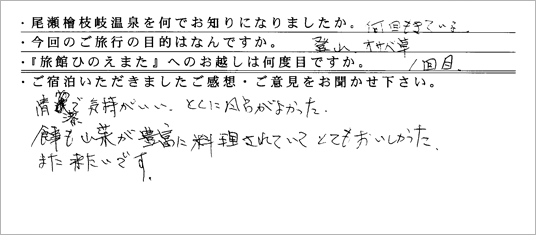 ・尾瀬檜枝岐温泉を何でお知りになりましたか。何回も来ている。
・今回のご旅行の目的はなんですか。登山、オサバ草
・『旅館ひのえまた』へのお越しは何度目ですか。1回目。
・ご宿泊いただきましたご感想・ご意見をお聞かせ下さい。
清潔で気持がいい。とくにお風呂がよかった。
食事も山菜が豊富に料理されていてとてもおいしかった。
また来たいです。